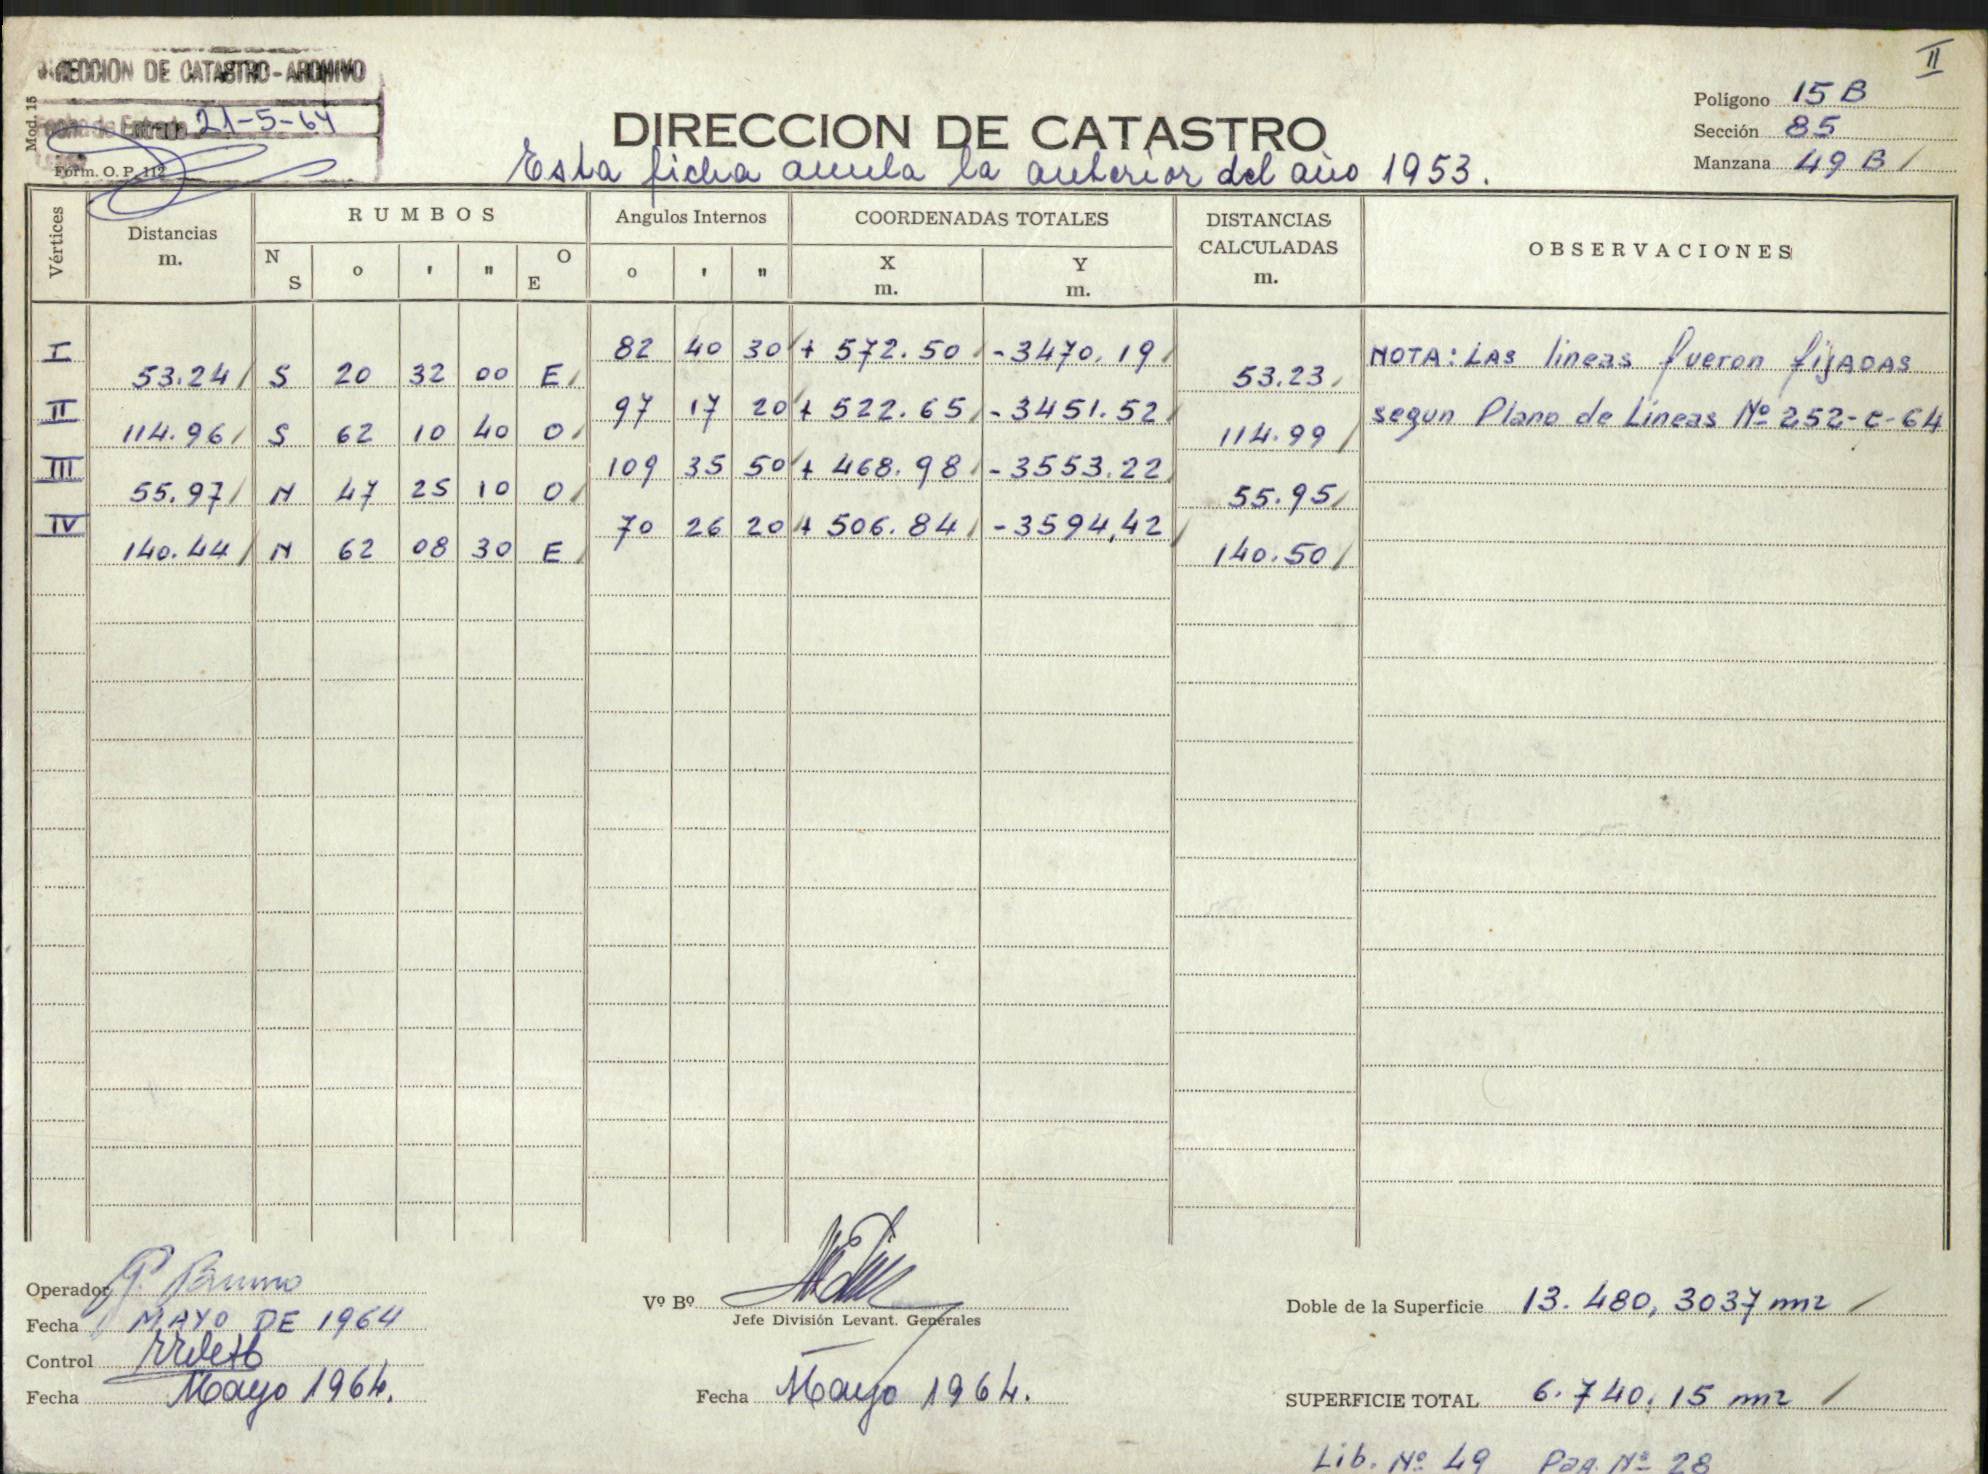 DIRECCION DE CATASTRO - ARCHIVO
Fecha de Entrada 21-5-64
Mod. 15
Form. O. P. 112
II
DIRECCION DE CATASTRO
Esta ficha anula la anterior del año 1953.
Polígono 15 B
Sección 85
Manzana 49 B
Vértices
Distancias m.
RUMBOS
N S o ' " O E
Angulos Internos
o ' "
COORDENADAS TOTALES
X m. Y m.
DISTANCIAS CALCULADAS m.
OBSERVACIONES
I 82 40 30 + 572.50 - 3470.19
53.24 S 20 32 00 E 53.23
II 97 17 20 + 522.65 - 3451.52
114.96 S 62 10 40 O 114.99
III 109 35 50 + 468.98 - 3553.22
55.97 N 47 25 10 O 55.95
IV 70 26 20 + 506.84 - 3594,42
140.44 N 62 08 30 E 140.50
NOTA: LAS lineas fueron fijADAS
segun Plano de Lineas Nº 252-C-64
Operador P. Bruno
Fecha MAYO DE 1964
Control
Fecha Mayo 1964.
Vº Bº
Jefe División Levant. Generales
Fecha Mayo 1964.
Doble de la Superficie 13.480,3037 m2
SUPERFICIE TOTAL 6.740,15 m2
Lib. Nº 49 Pag. Nº 28